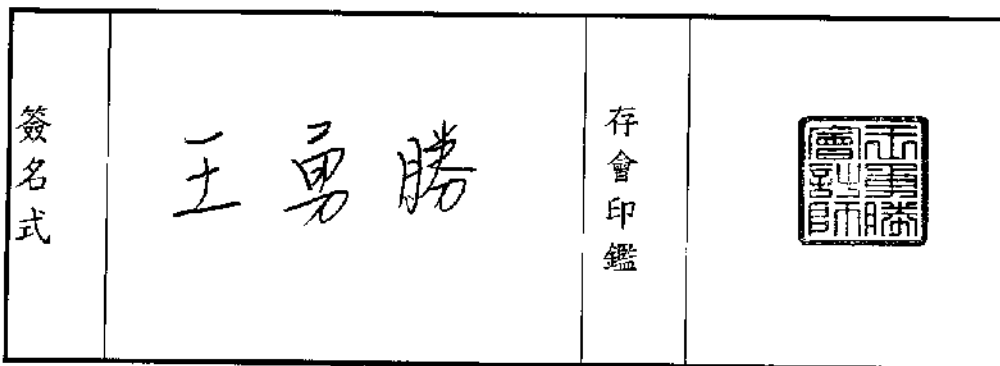 簽名式
王勇勝
存會印鑑
王勇勝
會計師